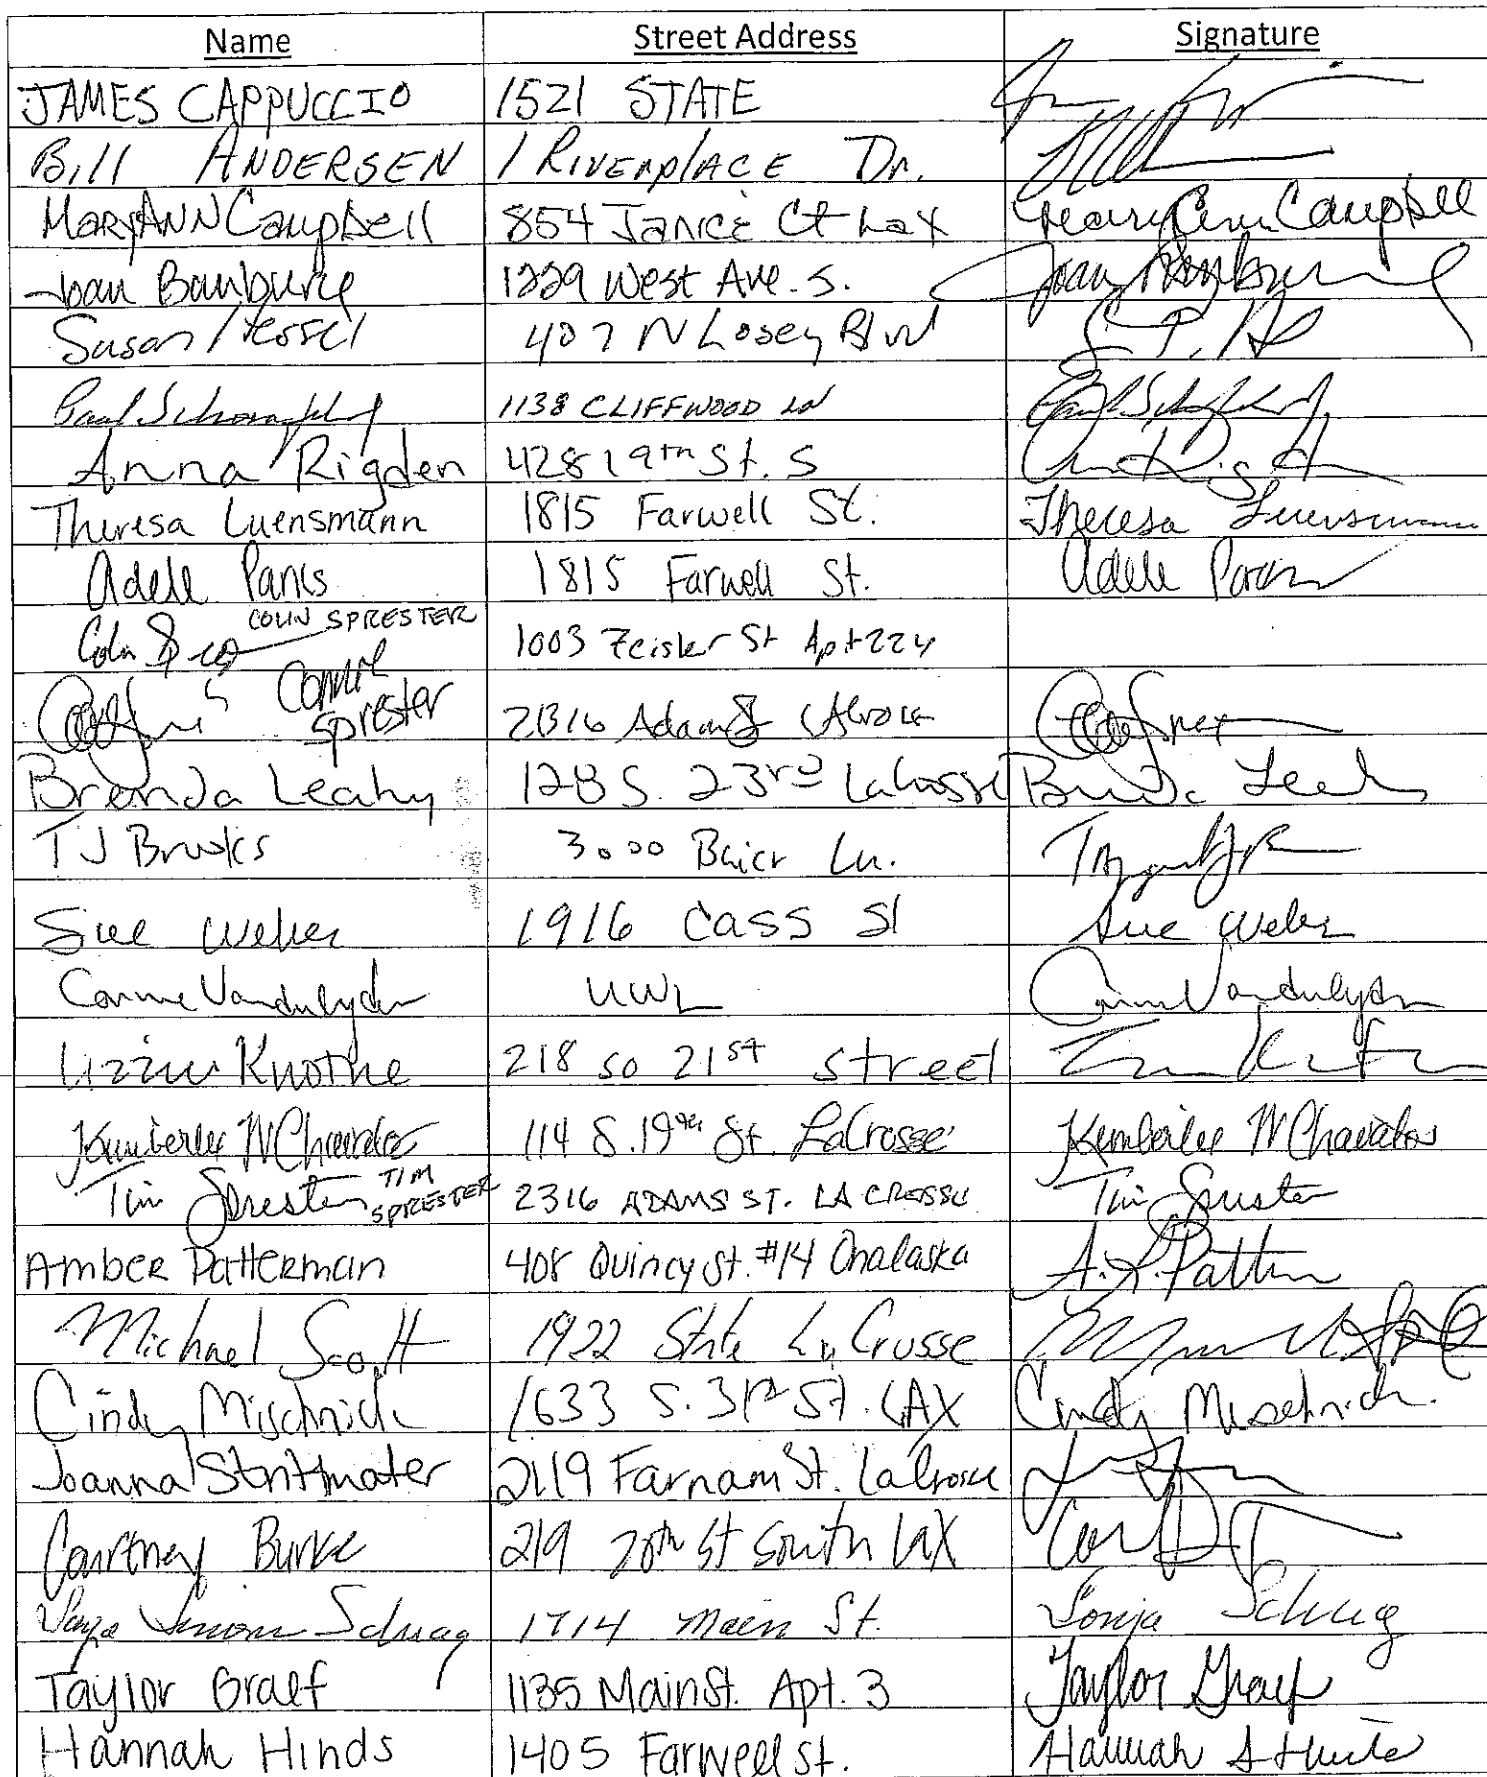 Name Street Address Signature
JAMES CAPPUCCIO 1521 STATE
Bill ANDERSEN 1 RIVERplACE Dr.
MaryANN Campbell 854 Janice Ct Lax Mary Ann Campbell
Joan Bunbury 1229 West Ave. S. Joan Bunbury
Susan Hessel 407 N Losey Blvd
Paul 1138 CLIFFWOOD LN Paul
Anna Rigden 428 19th St. S
Theresa Luensmann 1815 Farwell St. Theresa Luensmann
Adele Panks 1815 Farwell St. Adele
COLIN SPRESTER 1003 Zeisler St Apt 224
Connie Sprester 2316 Adams
Brenda Leahy 128 S. 23rd LaCrosse Brenda Leahy
TJ Brooks 3000 Baier Ln.
Sue Weber 1916 Cass St Sue Weber
UWL
Lizzie Knothe 218 so 21st street
Kimberlee 114 S. 19th St. LaCrosse Kimberlee
Tim Sprester TIM SPRESTER 2316 ADAMS ST. LA CROSSE Tim Sprester
Amber Patterman 408 Quincy St. #14 Onalaska
Michael Scott 1922 State La Crosse
Cindy Mischnick 1633 S. 31st St. LAX Cindy Mischnick
Joanna Strittmater 2119 Farnam St. LaCrosse
Courtney Burke 219 20th St South LAX
Sonja Schug 1714 Main St. Sonja Schug
Taylor Graef 1135 Main St. Apt. 3 Taylor Graef
Hannah Hinds 1405 Farwell St. Hannah